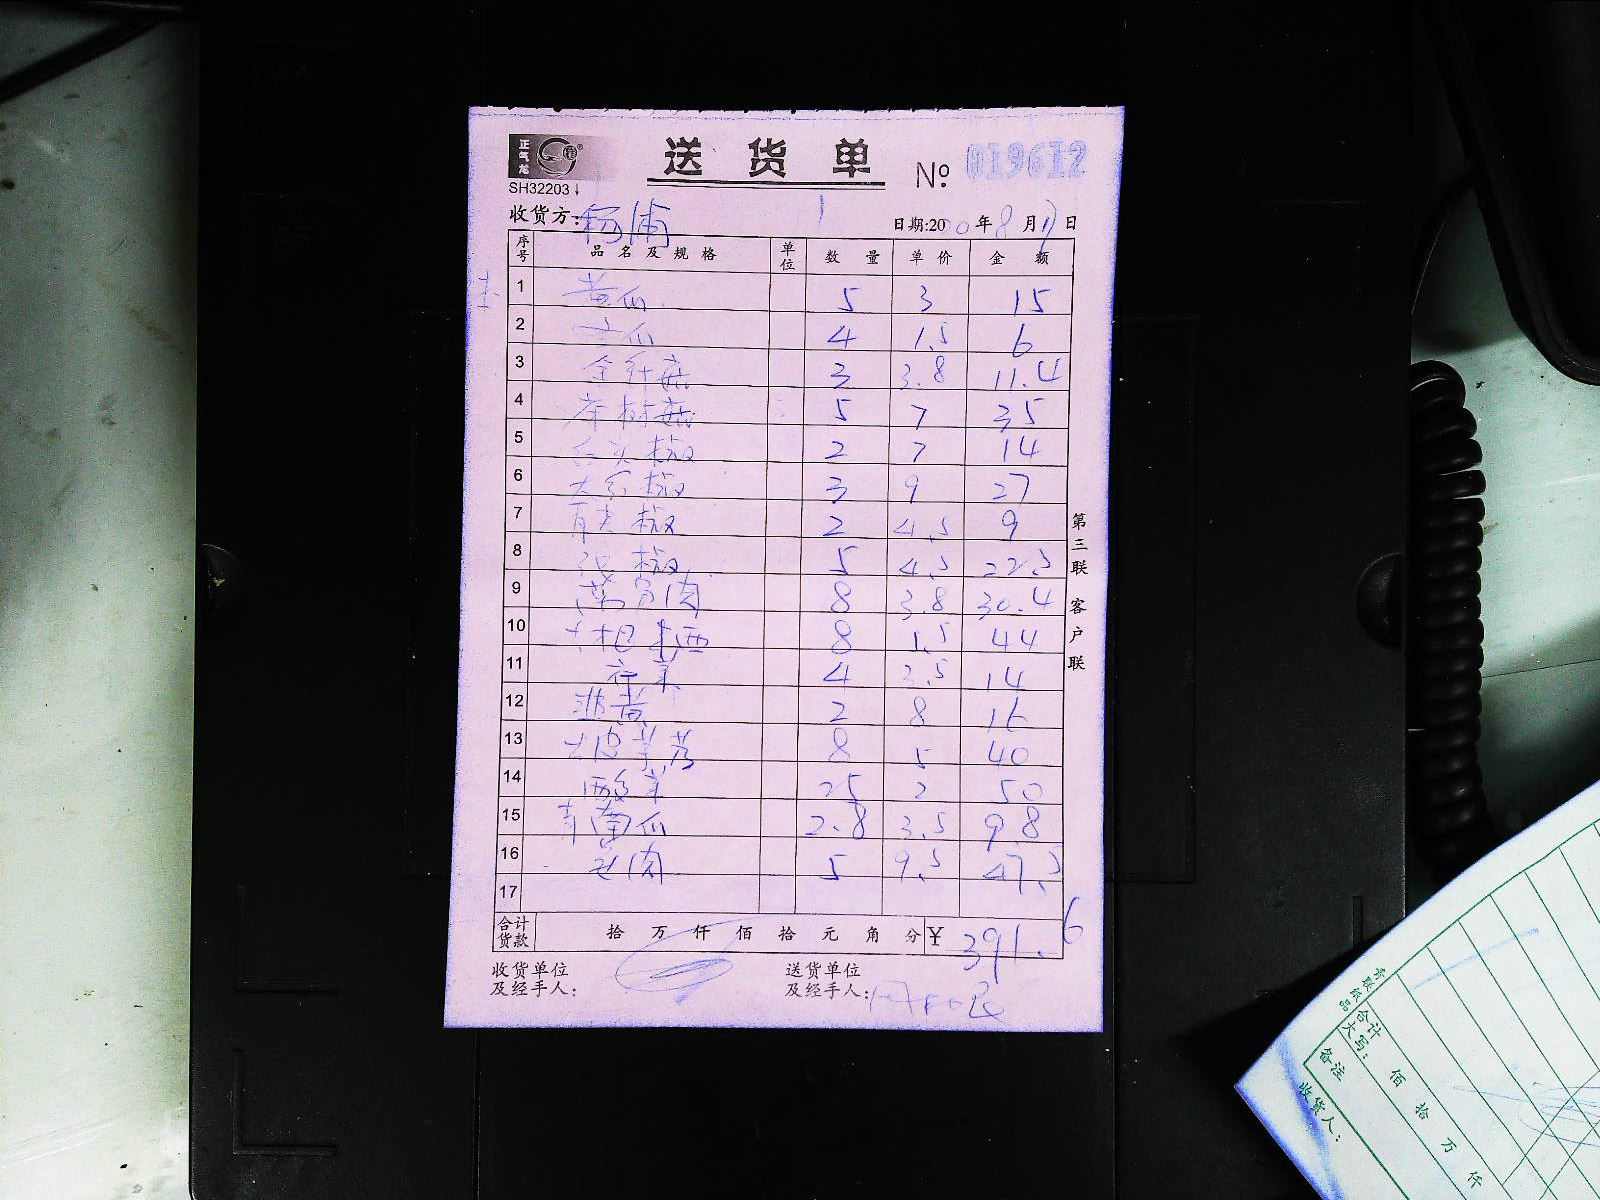 正气龙
送货单 No 019612
SH32203
收货方: 杨浦 日期:20 0年8月17日
序号 品名及规格 单位 数量 单价 金额
1 黄瓜 5 3 15
2 瓜 4 1.5 6
3 金针菇 3 3.8 11.4
4 茶树菇 5 7 35
5 椒 2 7 14
6 大红椒 3 9 27
7 青尖椒 2 4.5 9
8 椒 5 4.5 22.5
9 肉 8 3.8 30.4
10 8 44
11 芹菜 4 3.5 14
12 韭黄 2 8 16
13 8 5 40
14 酸菜 25 2 50
15 青南瓜 2.8 3.5 9.8
16 肉 5 9.5 47.5
17
合计货款 拾 万 仟 佰 拾 元 角 分 ¥ 391.6
收货单位及经手人: 送货单位及经手人:
第三联 客户联
合计
大写: 佰 拾 万 仟
备注
收货人: